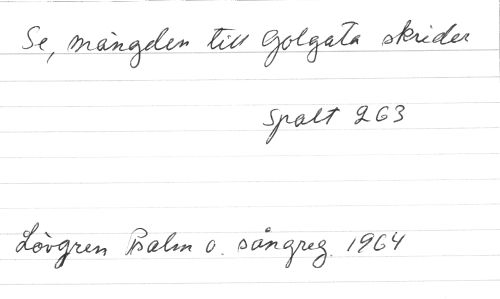 Se, mängden till Golgata skrider
Spalt 263
Lövgren Psalm o. sångreg. 1964